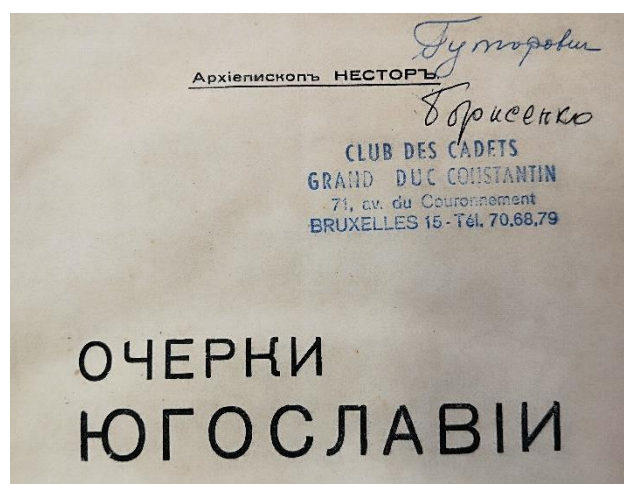 Гуторович
Архіепископъ НЕСТОРЪ.
Борисенко
CLUB DES CADETS
GRAND DUC CONSTANTIN
71, av. du Couronnement
BRUXELLES 15 - Tél. 70.68.79
ОЧЕРКИ
ЮГОСЛАВІИ